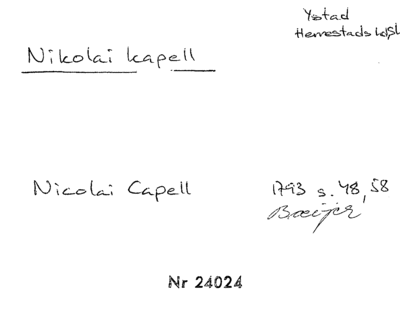 Ystad
Herrestads klsl
Nikolai kapell
Nicolai Capell
1793 s. 48, 58
Bæijer
Nr 24024